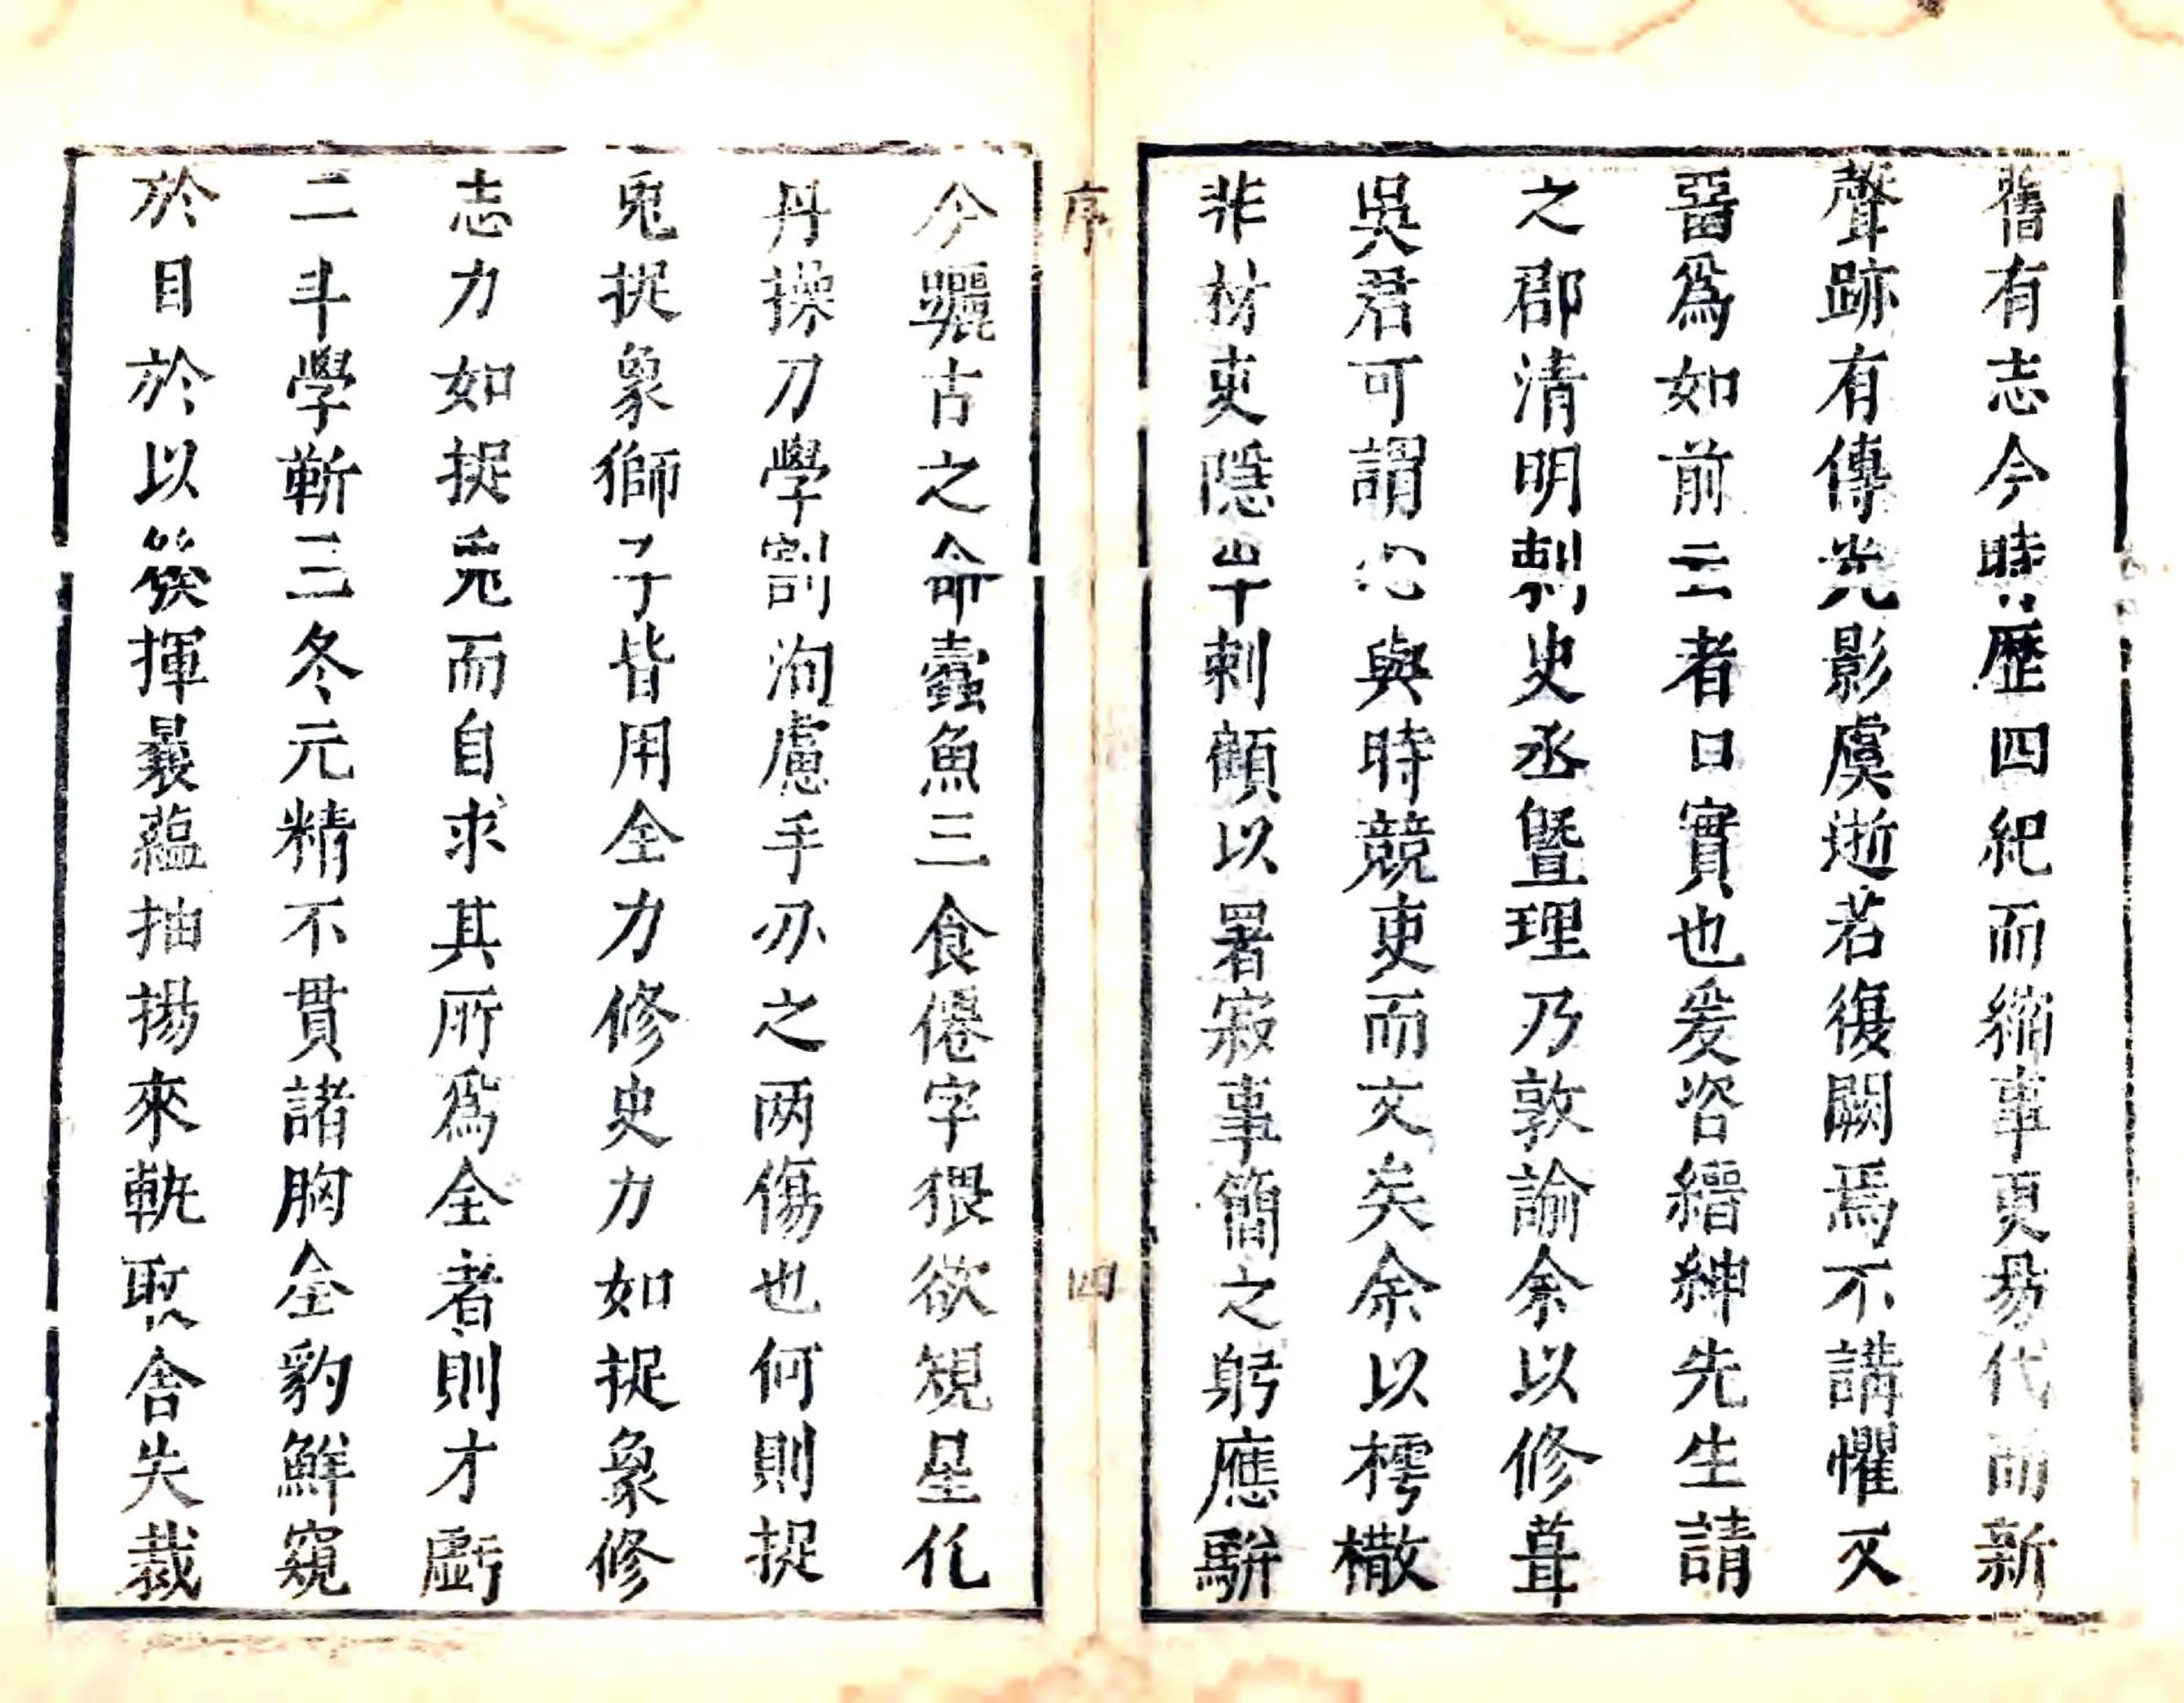 舊有志今時歷四紀而緧事更昜代而新
聲跡有傳光影虞逝若復闕焉不講懼又
畱爲如前云者口實也爰咨縉紳先生請
之郡清明刺史丞曁理乃敦諭余以修葺
吳君可謂心與時競吏而文矣余以樗櫢
非材吏隱半刺顧以署寂事簡之躬應駢
序
四
今驪古之命蠹魚三食僊字猥欲覢星化
丹操刀學割洵慮手刅之两傷也何則捉
兎捉象獅子皆用全力修史力如捉象修
志力如捉兎而自求其所爲全者則才虧
二斗學靳三冬元精不貫諸胸全豹鮮窺
於目於以發揮曩蘊抽揚來軌取舍失裁